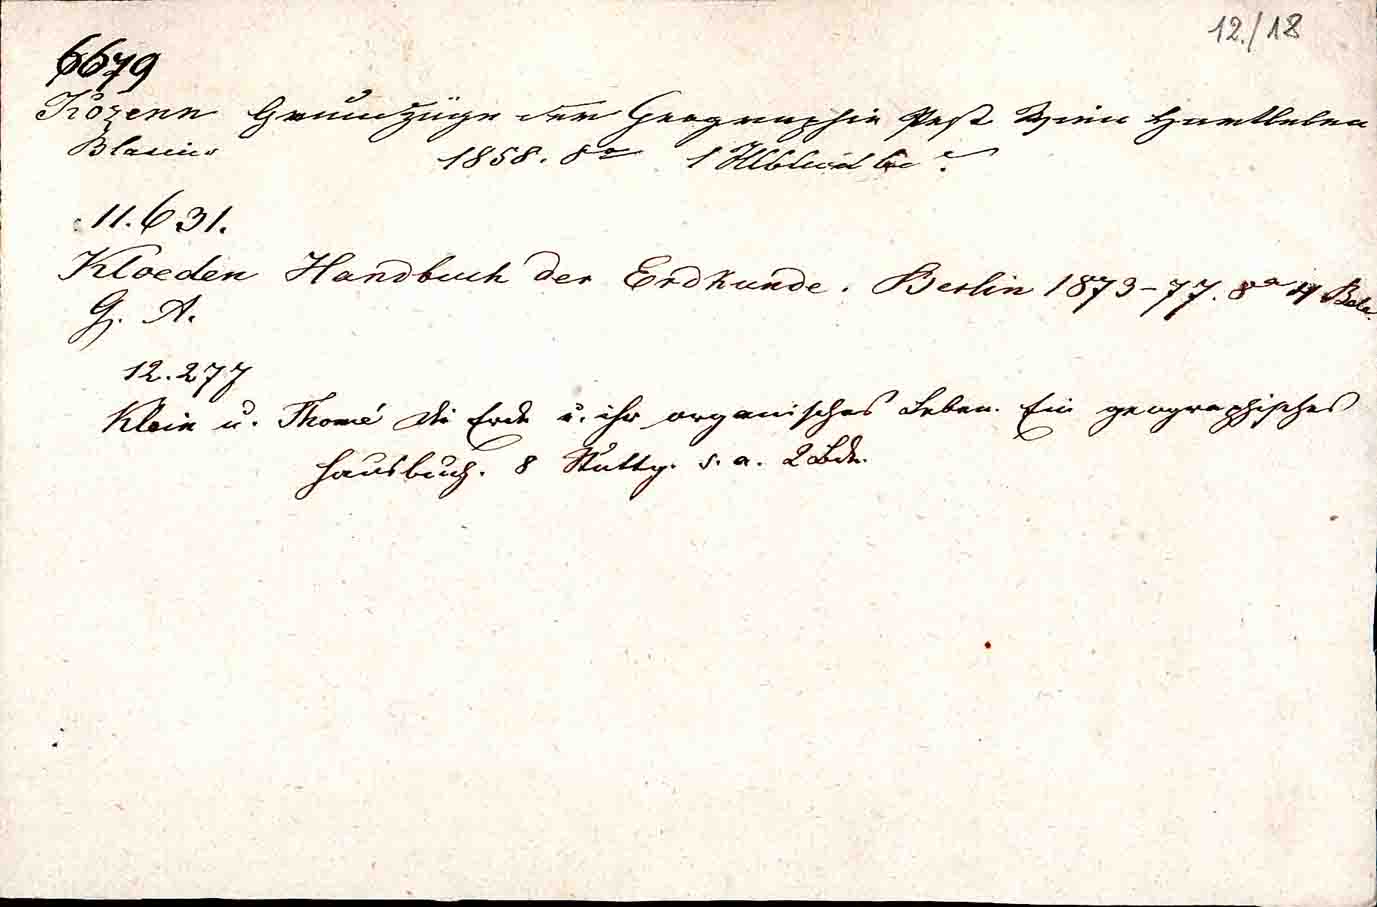 12./18
6679
Kozenn Grundzüge der Geographie Pest Wien Hartleben
Blasius 1858. 8° 1 Hlblwdbd.
11.631.
Kloeden Handbuch der Erdkunde. Berlin 1873-77. 8° 4 Bde.
G. A.
12.277
Klein u. Thomé Die Erde u. ihr organisches Leben. Ein geographisches
Hausbuch. 8 Stuttg. s. a. 2 Bde.